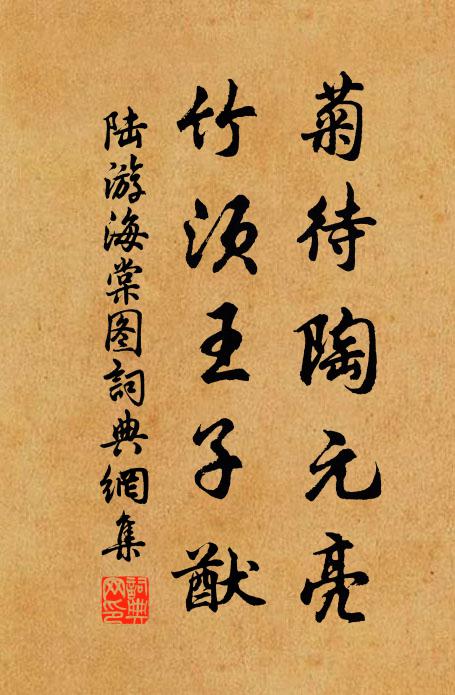 菊待陶元亮
竹須王子猷
陆游海棠图詞典網集
詞典網印